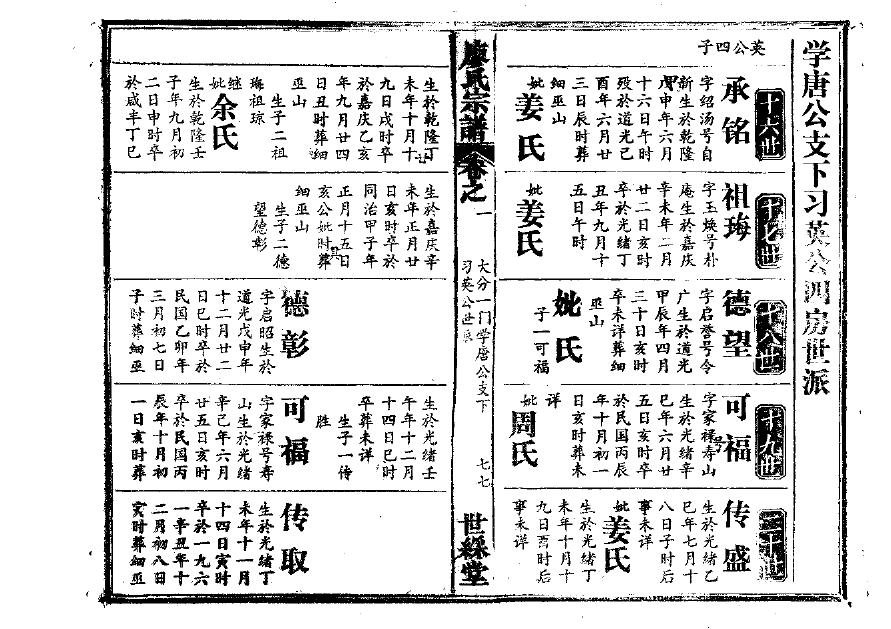 学唐公支下习英公四房世派
英公四子
十六世
承铭
字绍汤号自
新生於乾隆
戊申年六月
十六日午时
殁於道光己
酉年六月廿
三日辰时葬
细巫山
妣
姜氏
生於乾隆丁
未年十月十
九日戌时卒
於嘉庆乙亥
年九月廿四
日丑时葬细
巫山
生子二祖
珻祖琼
继妣
余氏
生於乾隆壬
子年九月初
二日申时卒
於咸丰丁巳
十七世
祖珻
字玉焕号朴
庵生於嘉庆
辛未年二月
廿二日亥时
卒於光绪丁
丑年九月十
五日午时
妣
姜氏
生於嘉庆辛
未年正月廿
日亥时卒於
同治甲子年
正月十五日
亥公妣时葬
细巫山
生子二德
望德彰
十八世
德望
字启誉号令
广生於道光
甲辰年四月
三十日亥时
卒未详葬细
巫山
妣氏
子一可福
德彰
字启昭生於
道光戊申年
十二月廿二
日巳时卒於
民国乙卯年
三月初七日
子时葬细巫
十九世
可福
字家禄寿山
生於光绪辛
巳年六月廿
五日亥时卒
於民国丙辰
年十月初一
日亥时葬未
详
妣
周氏
生於光绪壬
午年十二月
十四日巳时
卒葬未详
生子一传
胜
可福
字家禄号寿
山生於光绪
辛巳年六月
廿五日亥时
卒於民国丙
辰年十月初
一日亥时葬
二十世
传盛
生於光绪乙
巳年七月十
八日子时后
事未详
妣
姜氏
生於光绪丁
未年十月十
九日酉时后
事未详
传取
生於光绪丁
未年十一月
十四日寅时
卒於一九六
一辛丑年十
二月初八日
寅时葬细巫
廖氏宗谱
卷之一
大分一门学唐公支下
习英公世派
七七
世綵堂